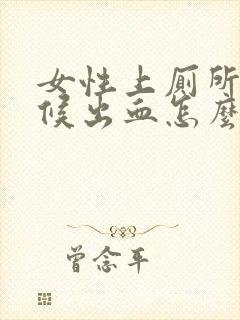 女性上厕所
候出血怎麽
曾念平